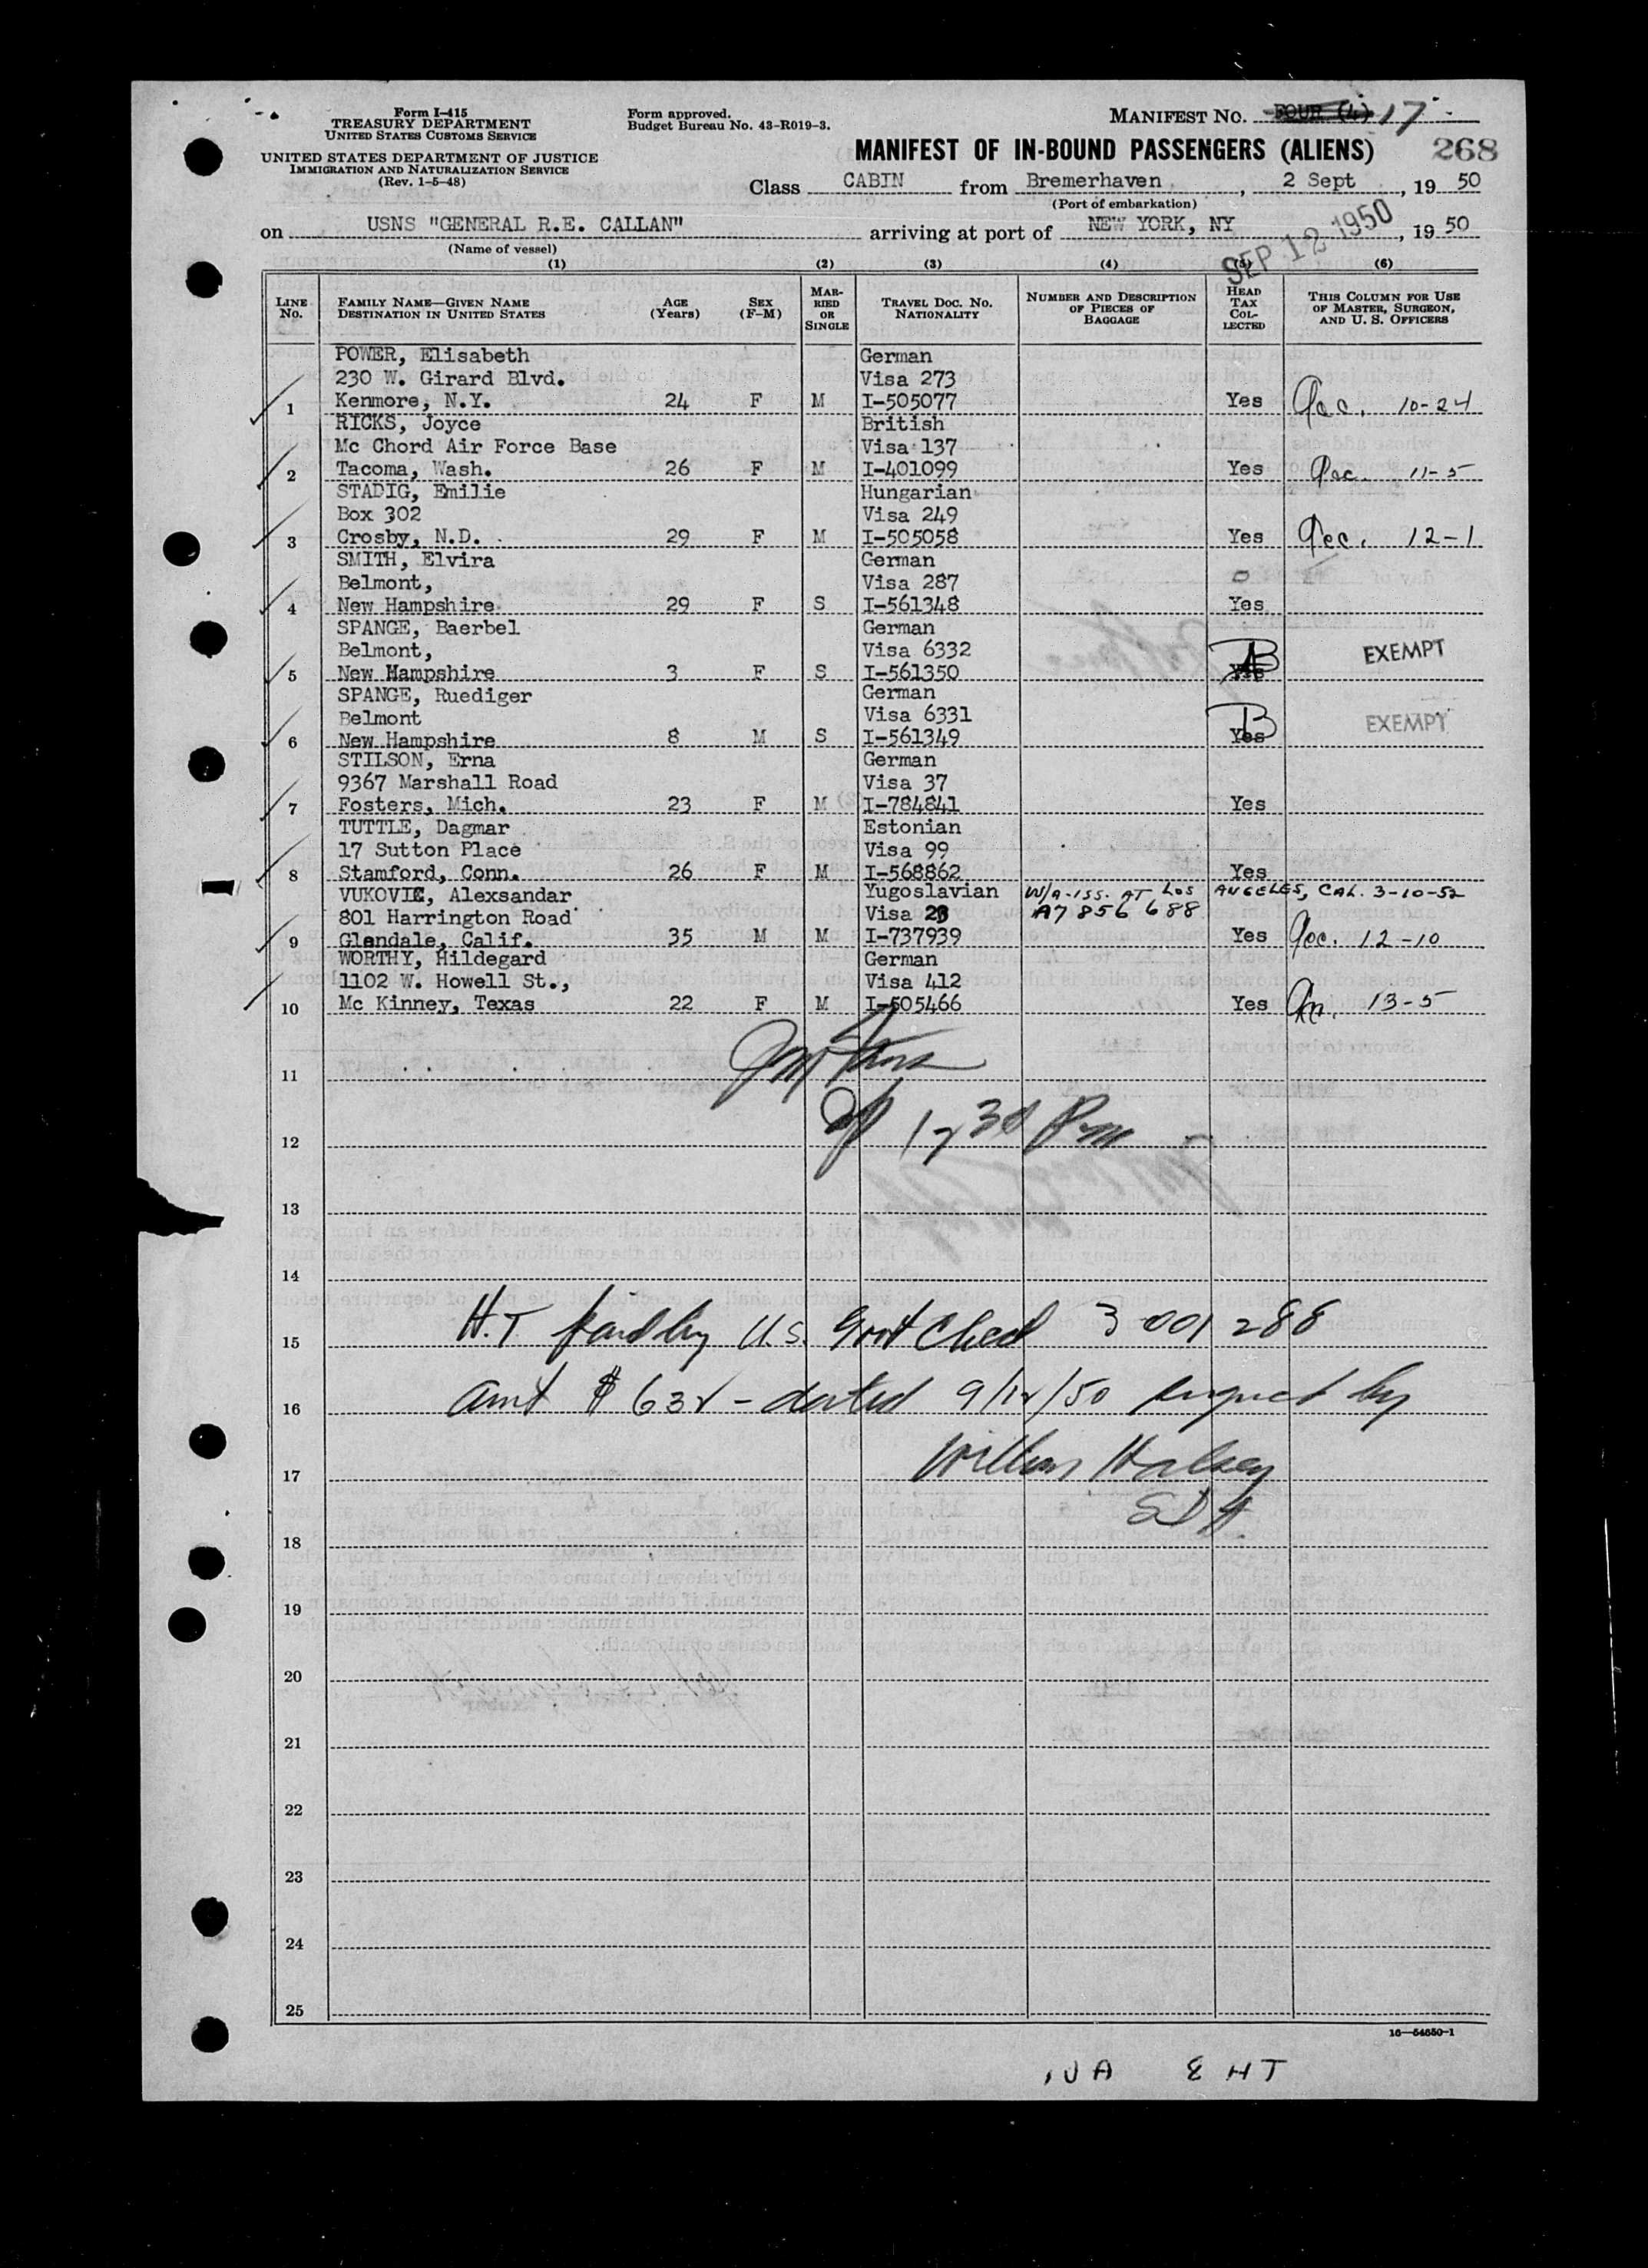 Form I-415
TREASURY DEPARTMENT
UNITED STATES CUSTOMS SERVICE
UNITED STATES DEPARTMENT OF JUSTICE
IMMIGRATION AND NATURALIZATION SERVICE
(Rev. 1-5-48)
Form approved.
Budget Bureau No. 43-R019-3.
MANIFEST NO. FOUR (4) 17
MANIFEST OF IN-BOUND PASSENGERS (ALIENS) 268
Class CABIN from Bremerhaven, 2 Sept, 19 50
(Port of embarkation)
on USNS "GENERAL R.E. CALLAN" arriving at port of NEW YORK, NY, 19 50
SEP 12 1950
(Name of vessel)
(1) (2) (3) (4) (5) (6)
LINE No. FAMILY NAME—GIVEN NAME DESTINATION IN UNITED STATES AGE (Years) SEX (F-M) MARRIED OR SINGLE TRAVEL DOC. NO. NATIONALITY NUMBER AND DESCRIPTION OF PIECES OF BAGGAGE HEAD TAX COLLECTED THIS COLUMN FOR USE OF MASTER, SURGEON, AND U. S. OFFICERS
POWER, Elisabeth German
230 W. Girard Blvd. Visa 273
1 Kenmore, N.Y. 24 F M I-505077 Yes 10-24
RICKS, Joyce British
Mc Chord Air Force Base Visa 137
2 Tacoma, Wash. 26 F M I-401099 Yes 11-5
STADIG, Emilie Hungarian
Box 302 Visa 249
3 Crosby, N.D. 29 F M I-505058 Yes 12-1
SMITH, Elvira German
Belmont, Visa 287 0
4 New Hampshire 29 F S I-561348 Yes
SPANGE, Baerbel German
Belmont, Visa 6332 B EXEMPT
5 New Hampshire 3 F S I-561350 Yes
SPANGE, Ruediger German
Belmont Visa 6331 B EXEMPT
6 New Hampshire 8 M S I-561349 Yes
STILSON, Erna German
9367 Marshall Road Visa 37
7 Fosters, Mich. 23 F M I-784841 Yes
TUTTLE, Dagmar Estonian
17 Sutton Place Visa 99
8 Stamford, Conn. 26 F M I-568862 Yes
VUKOVIC, Alexsandar Yugoslavian W/A-ISS. AT LOS ANGELES, CAL. 3-10-52
801 Harrington Road Visa 23 A7 856 688
9 Glendale, Calif. 35 M M I-737939 Yes 12-10
WORTHY, Hildegard German
1102 W. Howell St., Visa 412
10 Mc Kinney, Texas 22 F M I-505466 Yes 13-5
11
12
13
14
15 H.T. paid by U.S. Govt Check 3 001 288
16 amt $ 632 - dated 9/12/50 signed by
17 William Halsey
18
19
20
21
22
23
24
25
16—54650-1
& HT